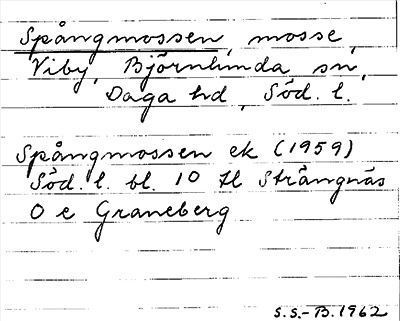 Spångmossen, mosse,
Viby, Björnlunda sn,
Daga hd, Söd. l.
Spångmossen ek (1959)
Söd. l. bl. 10 Il Strängnäs
O e Graneberg
S.S.-B. 1962